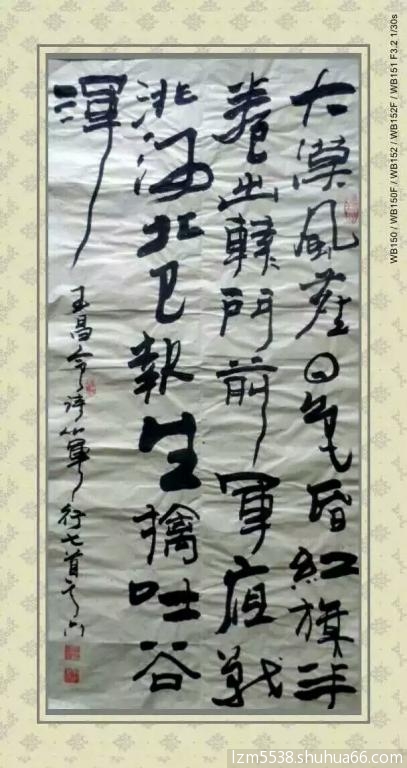 大漠風塵日色昏紅旗半
卷出轅門前軍夜戰
洮河北已報生擒吐谷
渾
王昌令詩從軍行七首
WB150 / WB150F / WB152 / WB152F / WB151 F3.2 1/30s
lzm5538.shuhua66.com